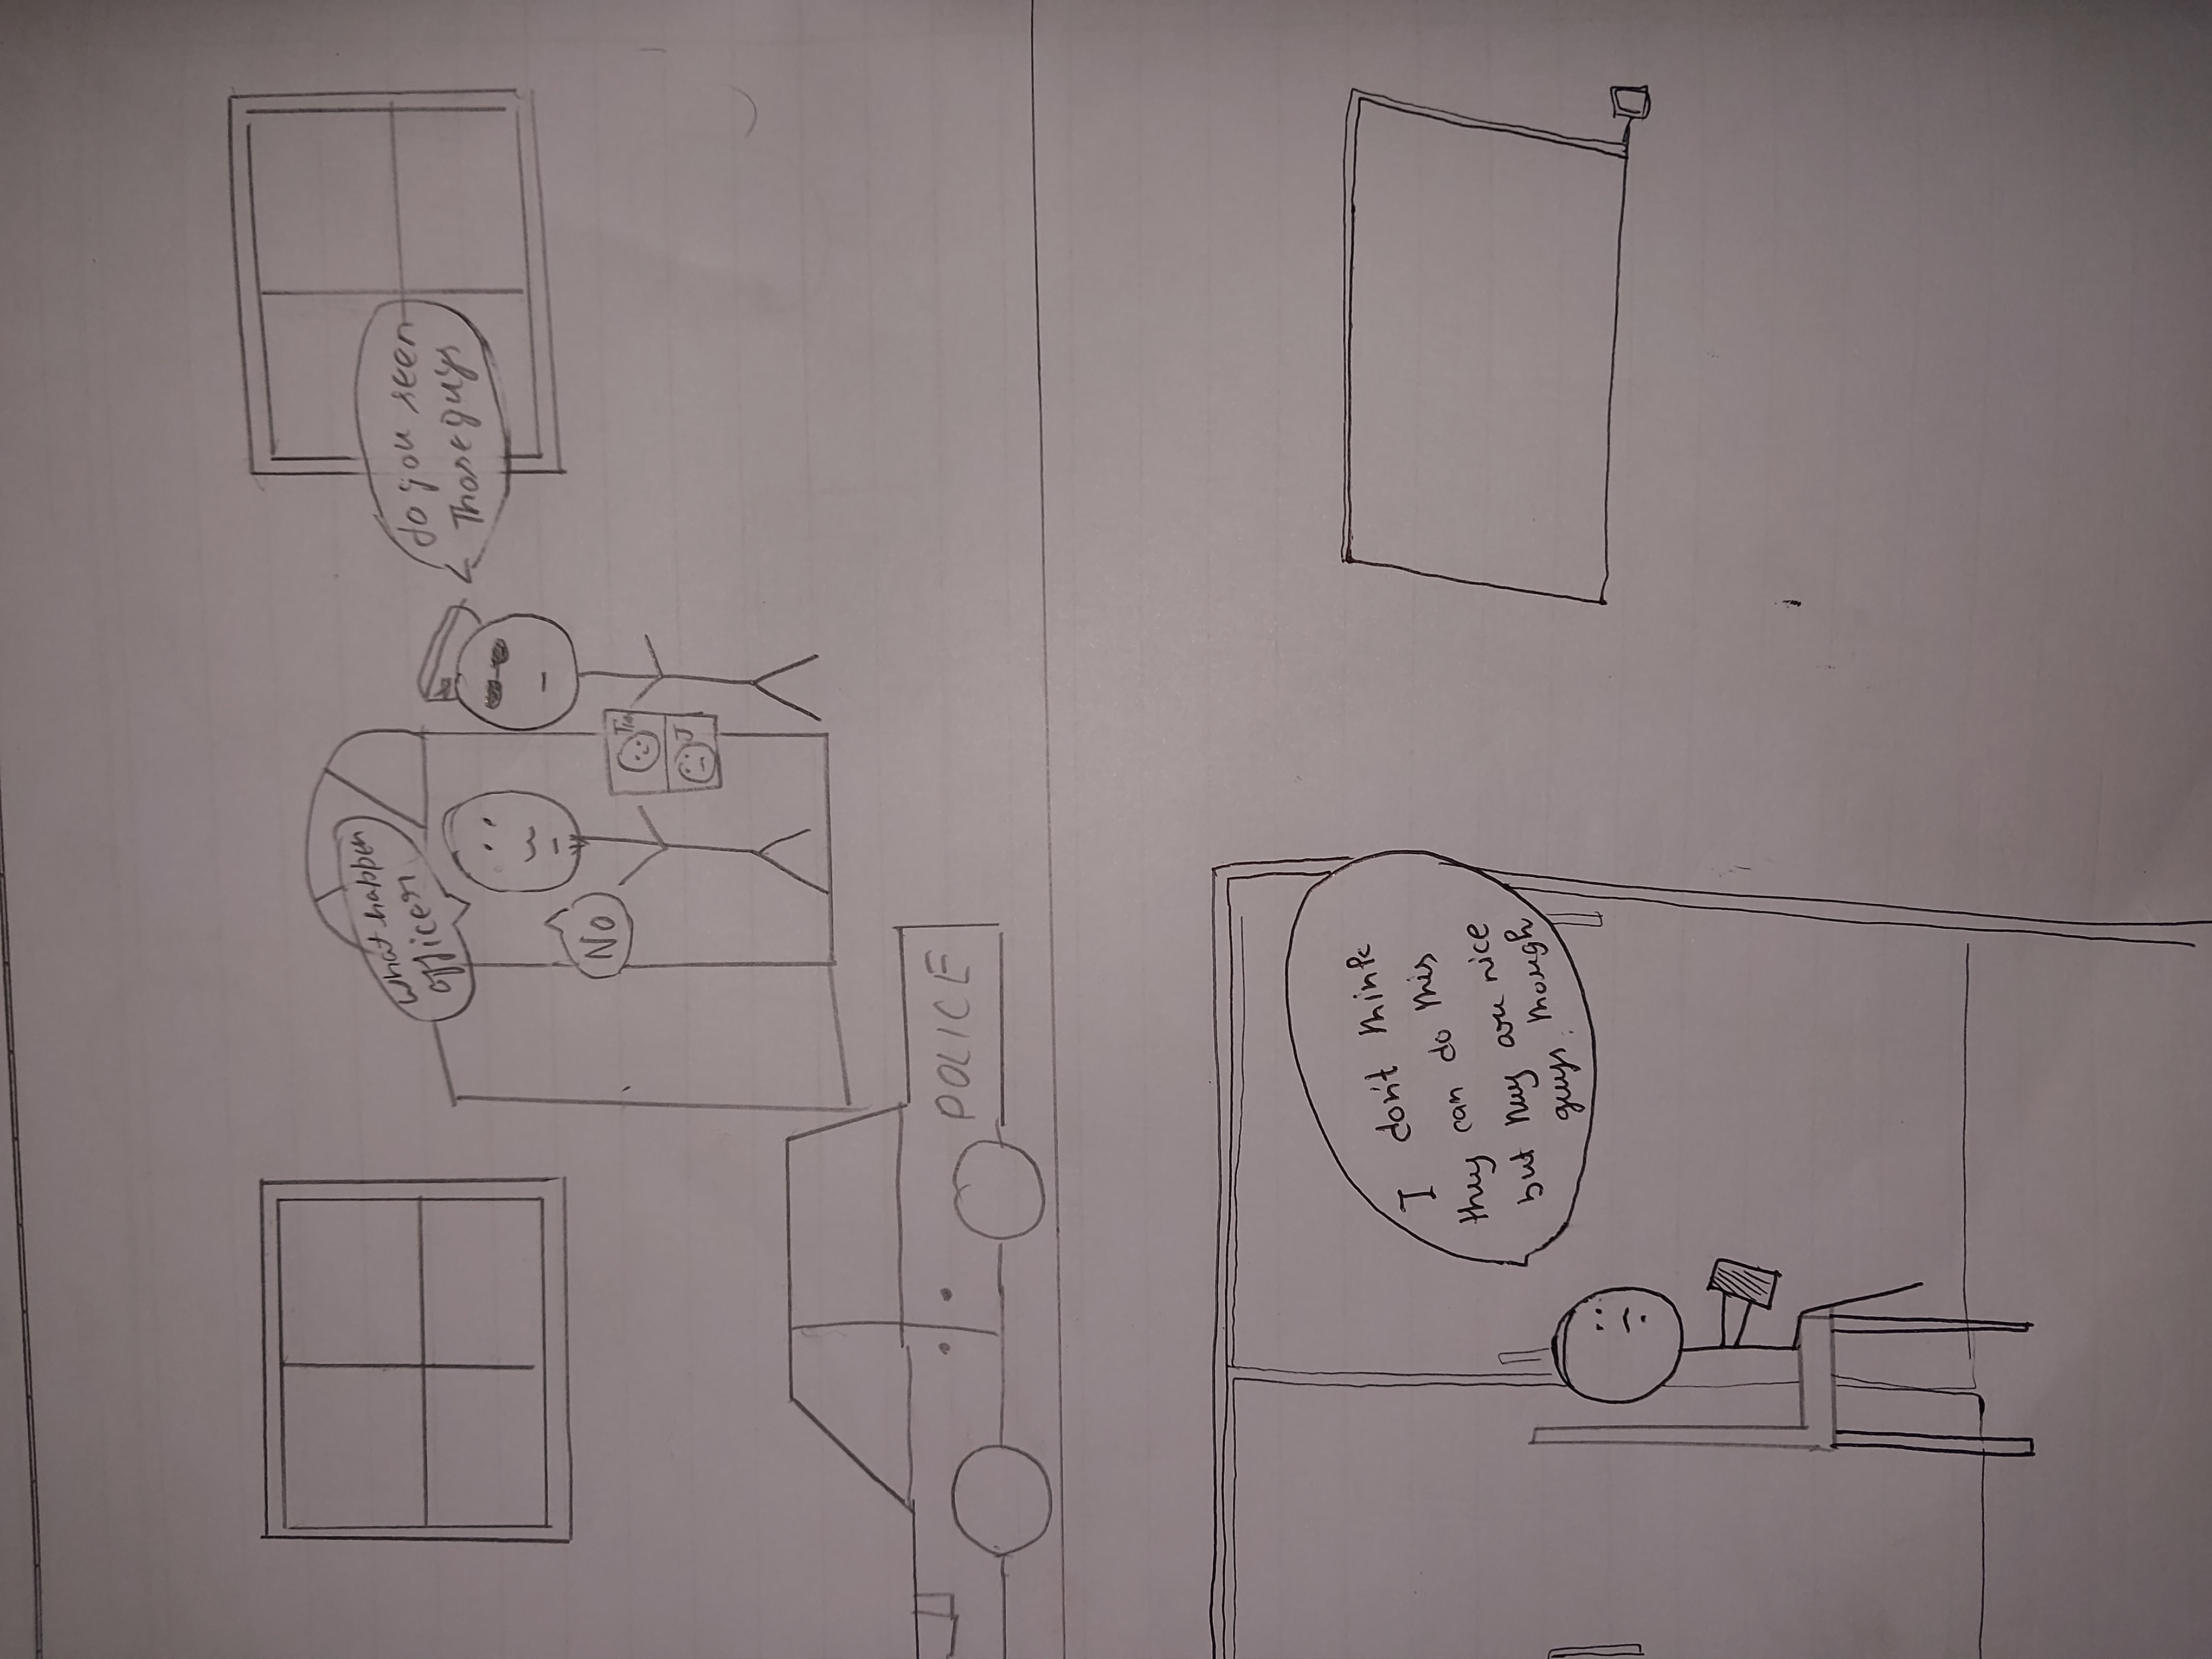 What happen
officer
do you seen
Those guys
No
Tim
J
POLICE
I don't think
they can do this
but they are nice
guys. though